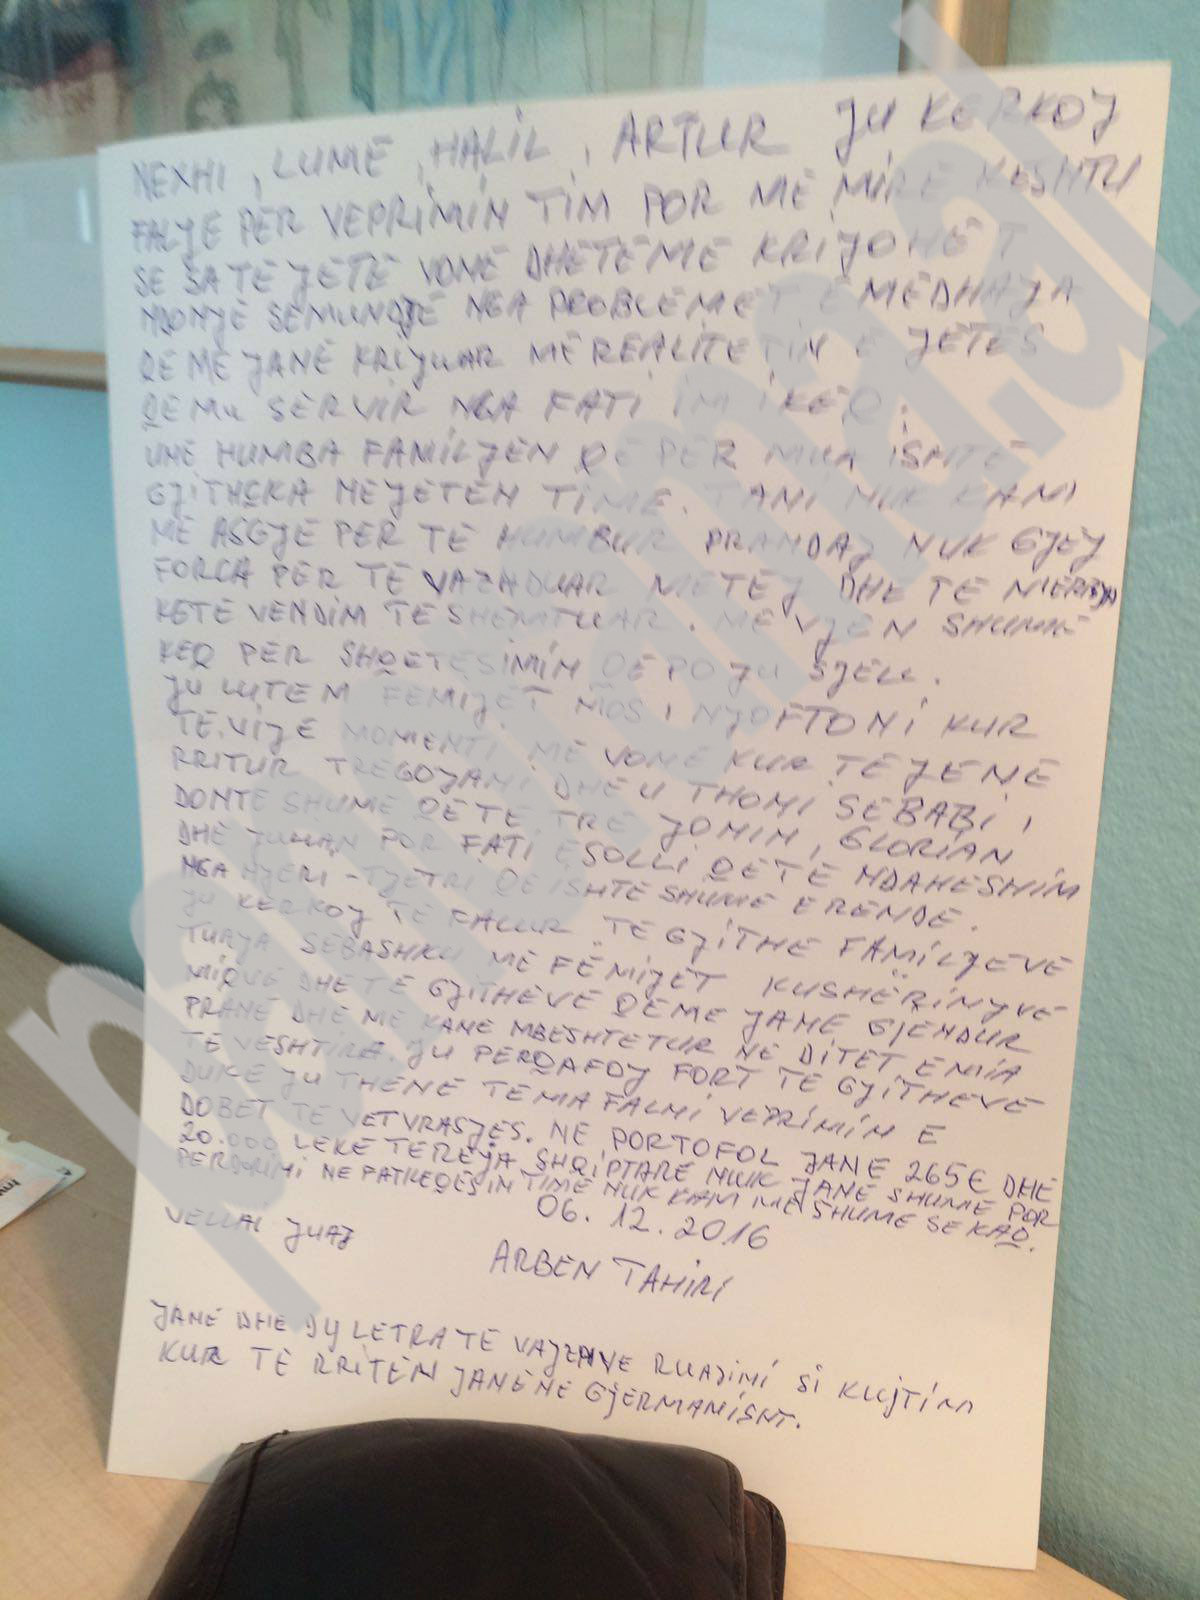 NEXHI, LUME, HALIL, ARTUR JU KERKOJ
FALJE PER VEPRIMIN TIM POR ME MIRE KESHTU
SE SA TE JETE VONE DHE TE ME KRIJOHET
NDONJE SEMUNDJE NGA PROBLEMET E MEDHAJA
QE ME JANE KRIJUAR ME REALITETIN E JETES
QE MU SERVIR NGA FATI IM I KEQ.
UNE HUMBA FAMILJEN QE PER MUA ISHTE
GJITHÇKA NE JETEN TIME. TANI NUK KAM
ME ASGJE PER TE HUMBUR PRANDAJ NUK GJEJ
FORCA PER TE VAZHDUAR METEJ DHE TE
KETE VENDIM TE SHEMTUAR. ME VJEN SHUME
KEQ PER SHQETESIMIN QE PO JU SJELL.
JU LUTEM FEMIJET MOS I NJOFTONI KUR
TE VIJE MOMENTI ME VONE KUR TE JENE
RRITUR TREGOJANI DHE U THONI SE BABI I
DONTE SHUME QE TE TRE JONIN, GLORIAN
DHE JUHAN POR FATI E SOLLI QE TE NDAHESHIM
NGA NJERI-TJETRI QE ISHTE SHUME E RENDE.
JU KERKOJ TE FALUR TE GJITHE FAMILJEVE
TUAJA SEBASHKU ME FËMIJET KUSHËRINJVE
MIQVE DHE TE GJITHEVE QE ME JANE GJENDUR
PRANE DHE ME KANE MBESHTETUR NE DITET E MIA
TE VESHTIRA. JU PERQAFOJ FORT TE GJITHEVE
DUKE JU THENE TE MA FALNI VEPRIMIN E
DOBET TE VETVRASJES. NE PORTOFOL JANE 265€ DHE
20.000 LEKE TE REJA SHQIPTARE NUK JANE SHUME POR
PERDORINI NE FATKEQESIN TIME NUK KAM ME SHUME SE KAQ.
06.12.2016
VELLAI JUAJ
ARBEN TAHIRI
JANE DHE DY LETRA TE VAJZAVE RUAJINI SI KUJTIM
KUR TE RRITEN JANE NE GJERMANISHT.